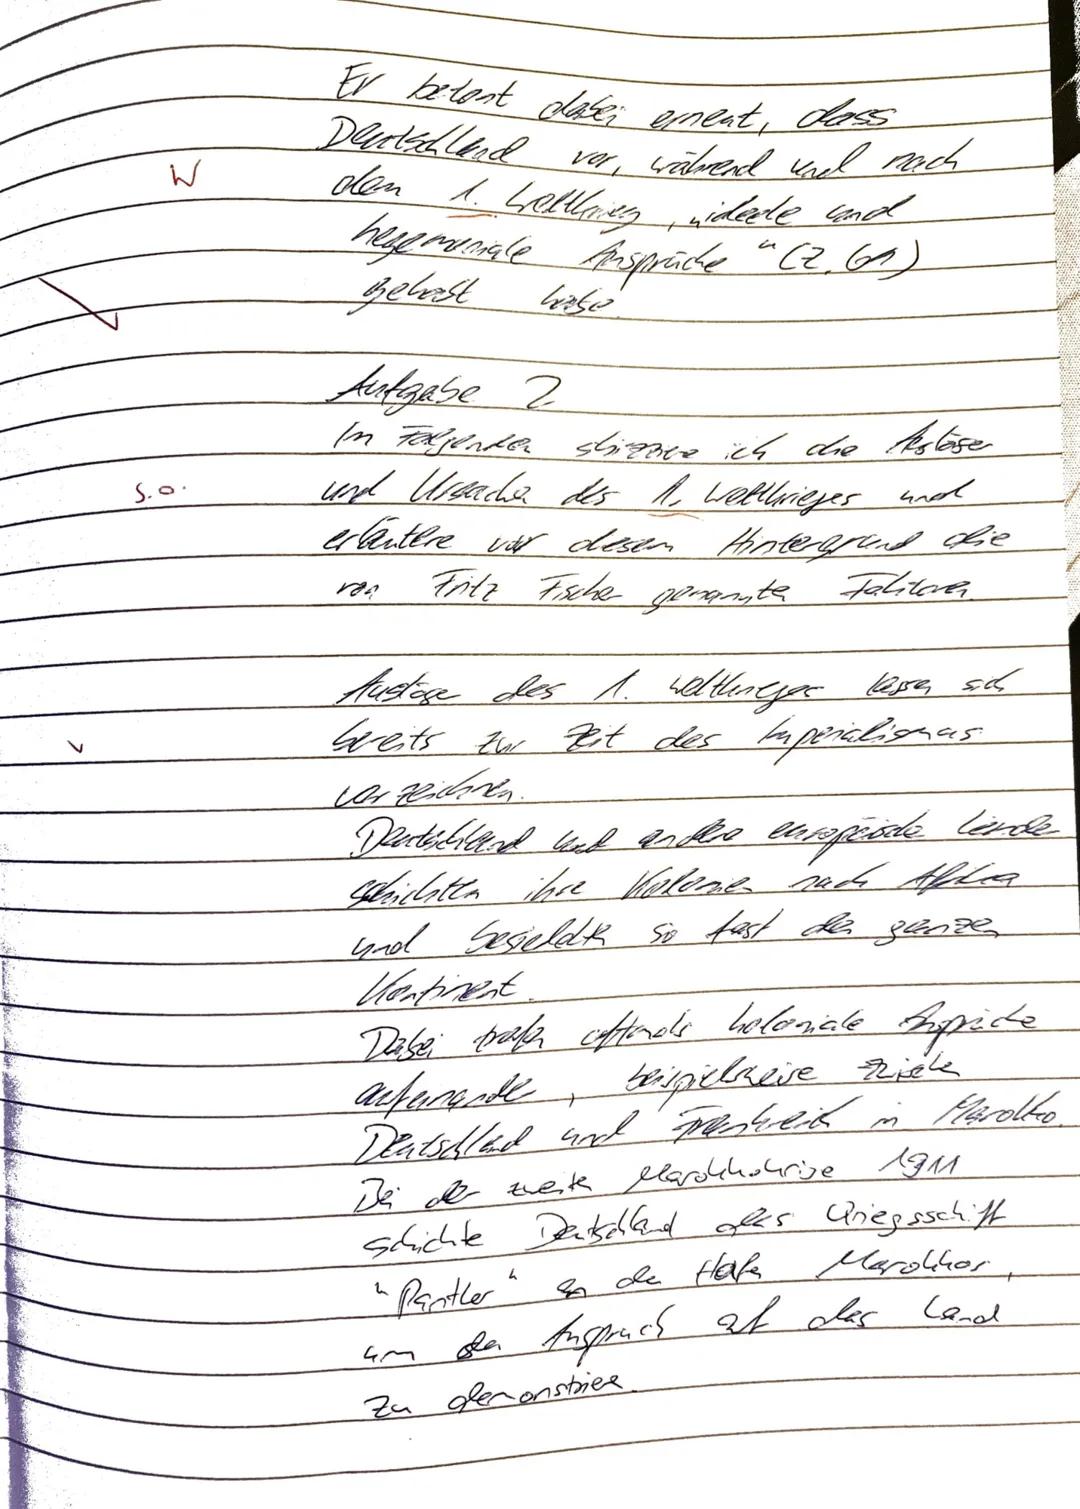 Er betont dabei erneut, dass
Deutschland vor, während und nach
W
dem 1. Weltkrieg „ideele und
hegemoniale Ansprüche" (Z. 61)
gehabt habe.
Aufgabe 2
Im Folgenden skizziere ich die Auslöser
s.o. und Ursachen des 1. Weltkrieges und
erläutere vor diesem Hintergrund die
von Fritz Fischer genannten Faktoren.
Auslöser des 1. Weltkrieges lassen sich
bereits zur Zeit des Imperialismus
verzeichnen.
Deutschland und andere europäische Länder
schickten ihre Kolonien nach Afrika
und besiedelten so fast den ganzen
Kontinent.
Dabei trafen oftmals koloniale Ansprüche
aufeinander, beispielsweise zwischen
Deutschland und Frankreich in Marokko.
Bei der zweiten Marokkokrise 1911
schickte Deutschland das Kriegsschiff
"Panther" an den Hafen Marokkos,
um den Anspruch auf das Land
zu demonstrieren.